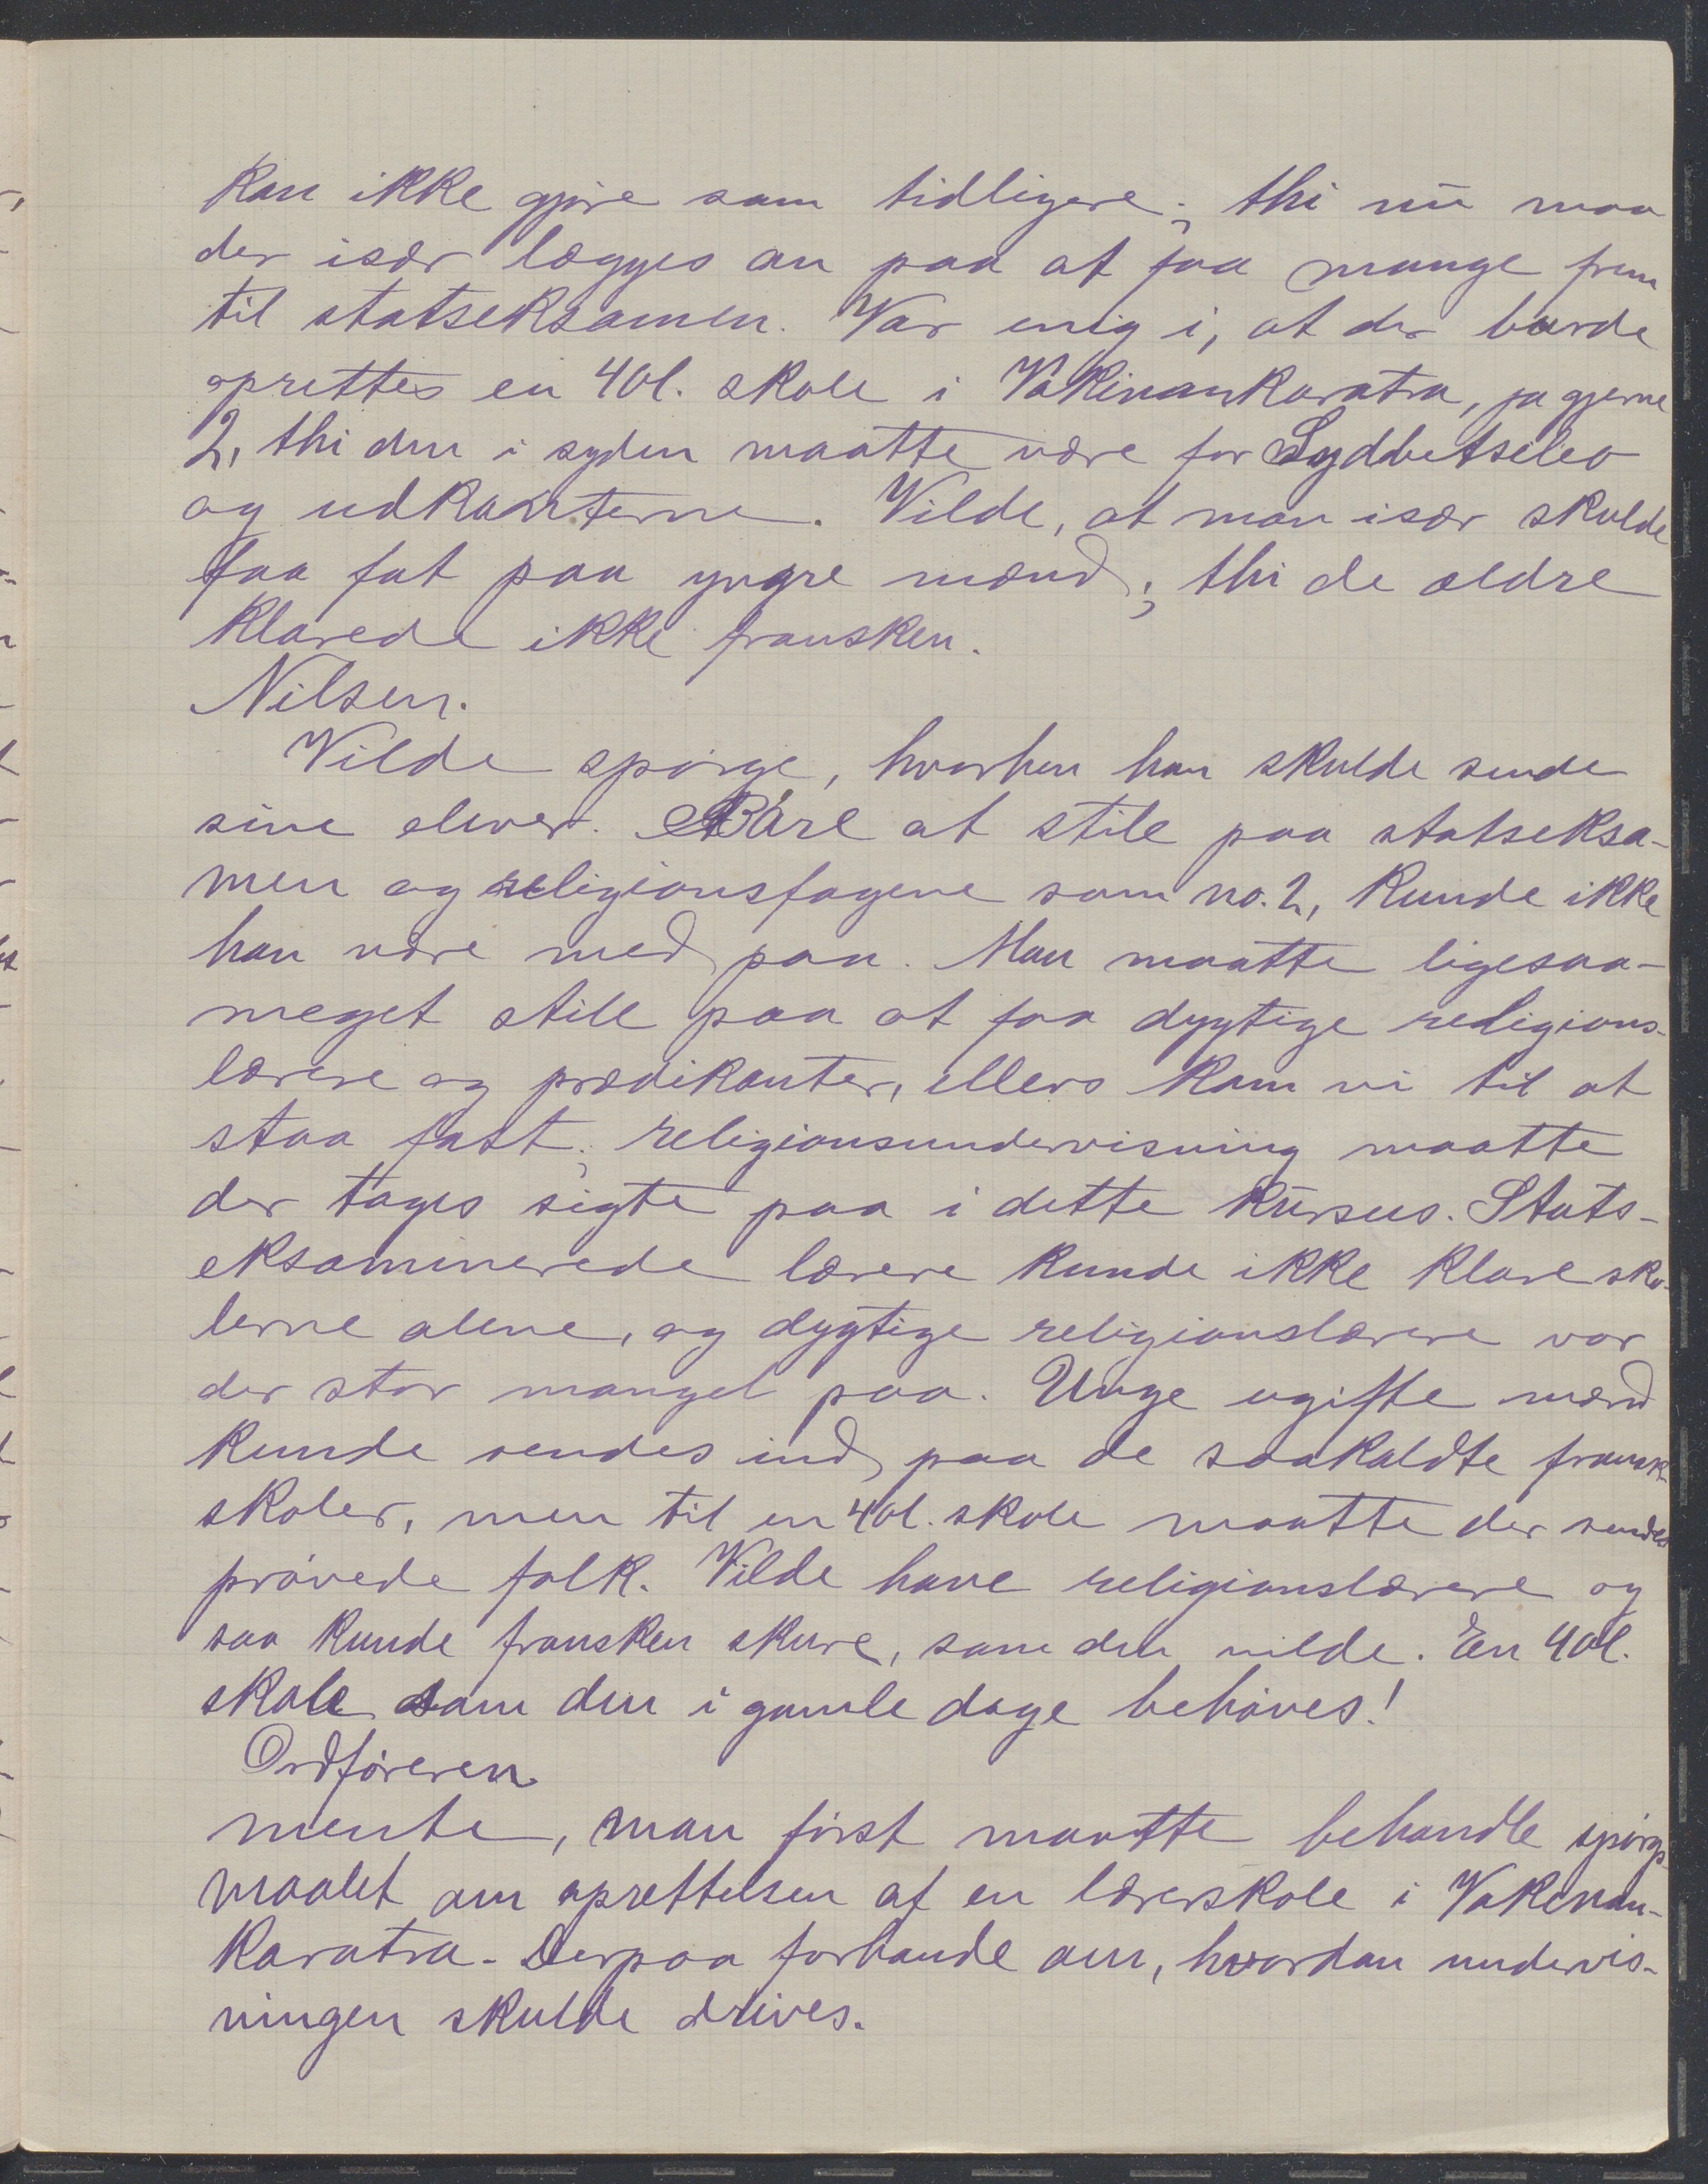 kan ikke gjöre som tidligere; thi nu maa
der især lægges an paa at faa mange frem
til statseksamen. Var enig i, at der burde
oprettes en 4 øl. skole i Vakinankaratra, ja gjerne
2, thi den i syden maatte være for Sydbetsileo
og udkanterne. Vilde, at man især skulde
faa fat paa yngre mænd; thi de ældre
klarede ikke fransken.
Nilsen.
Vilde spörge, hvorhen han skulde sende
sine elever. Bare at stile paa statseksa-
men og religionsfagene som no. 2, kunde ikke
han være med paa. Man maatte ligesaa-
meget stile paa at faa dygtige religions-
lærere og prædikanter, ellers kom vi til at
staa fast; religionsundervisning maatte
der tages sigte paa i dette kursus. Stats-
eksaminerede lærere kunde ikke klare sko-
lerne alene, og dygtige religionslærere var
der stor mangel paa. Unge ugifte mænd
kunde sendes ind paa de saakaldte fransk-
skoler, men til en 4 øl. skole maatte der sendes
prövede folk. Vilde have religionslærere og
saa kunde fransken skure, som den vilde. En 4 øl.
skole som den i gamle dage behöves!
Ordföreren
mente, man först maatte behandle spörgs-
maalet om oprettelsen af en lærerskole i Vakinan-
karatra. Derpaa forhande om, hvordan undervis-
ningen skulde drives.